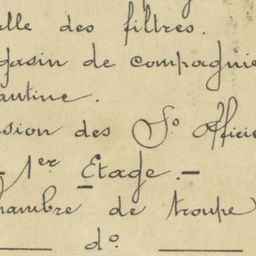 lle des filtres.
gasin de compagnie
antine.
sion des So Officie
- 1er Etage. -
hambre de troupe
do